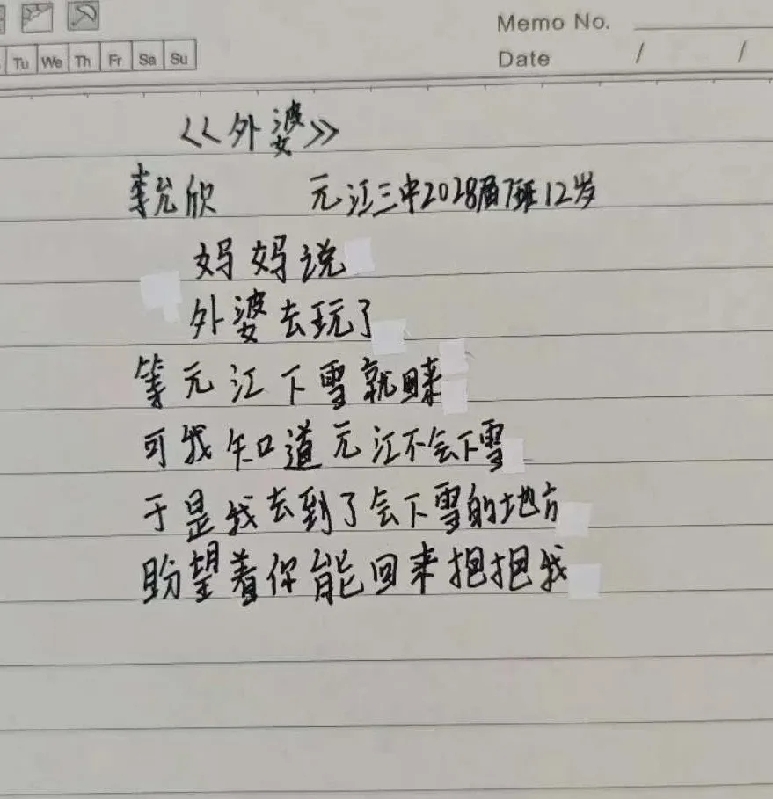 Memo No.
Tu We Th Fr Sa Su
Date / /
<<外婆>>
李允欣 元江三中2028届7班12岁
妈妈说
外婆去玩了
等元江下雪就回来
可我知道元江不会下雪
于是我去到了会下雪的地方
盼望着你能回来抱抱我